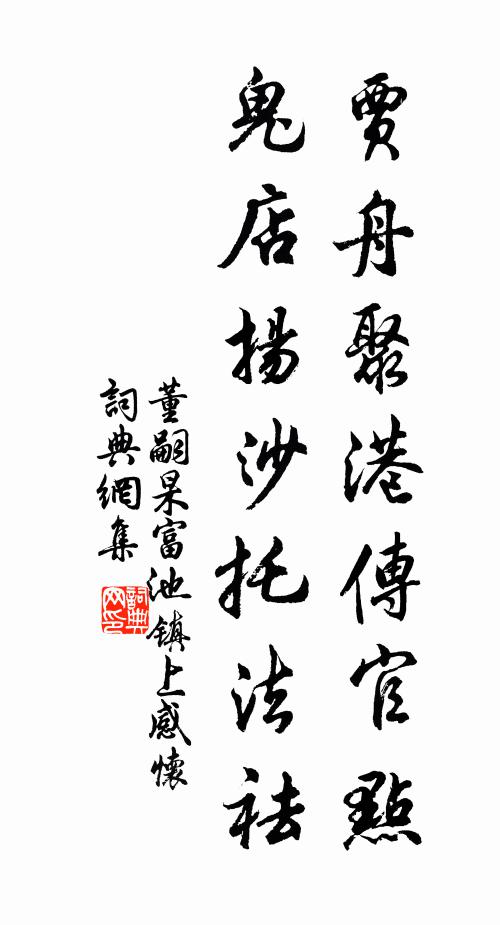 賈舟聚港傳官點
鬼店揚沙托法祛
董嗣杲富池鎮上感懷
詞典網集
詞典网印